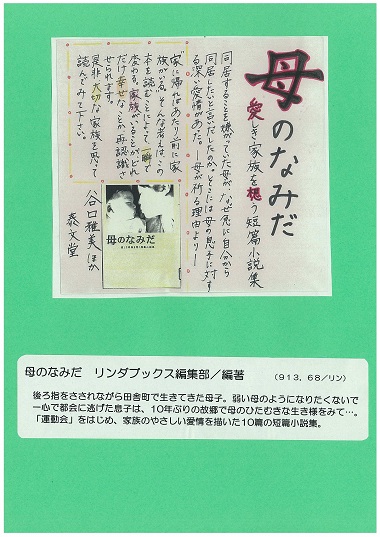 母のなみだ
愛しき家族を想う短篇小説集
同居することを嫌がっていた母が、なぜ急に自分から
同居したいと言いだしたのか。そこには母の息子に対す
る深い愛情があった。―母が祈る理由より―
家に帰ればあたり前に家
族がいる。そんな考えは、この
本を読むことによって一瞬で
変わる。家族がいることがどれ
だけ幸せなことか再認識さ
せられます。
是非大切な家族を思って
読んでみて下さい。
谷口雅美ほか
泰文堂
母のなみだ
母のなみだ リンダブックス編集部／編著 （913．68／リン）
後ろ指をさされながら田舎町で生きてきた母子。弱い母のようになりたくないで
一心で都会に逃げた息子は、10年ぶりの故郷で母のひたむきな生き様をみて…。
「運動会」をはじめ、家族のやさしい愛情を描いた10篇の短篇小説集。